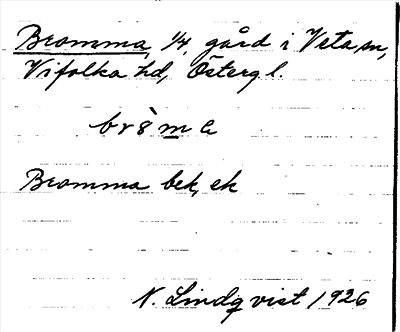 Bromma, 1/4, gård i Veta sn,
Vifolka hd, Östergl.
Bromma bek, ek
N. Lindqvist 1926